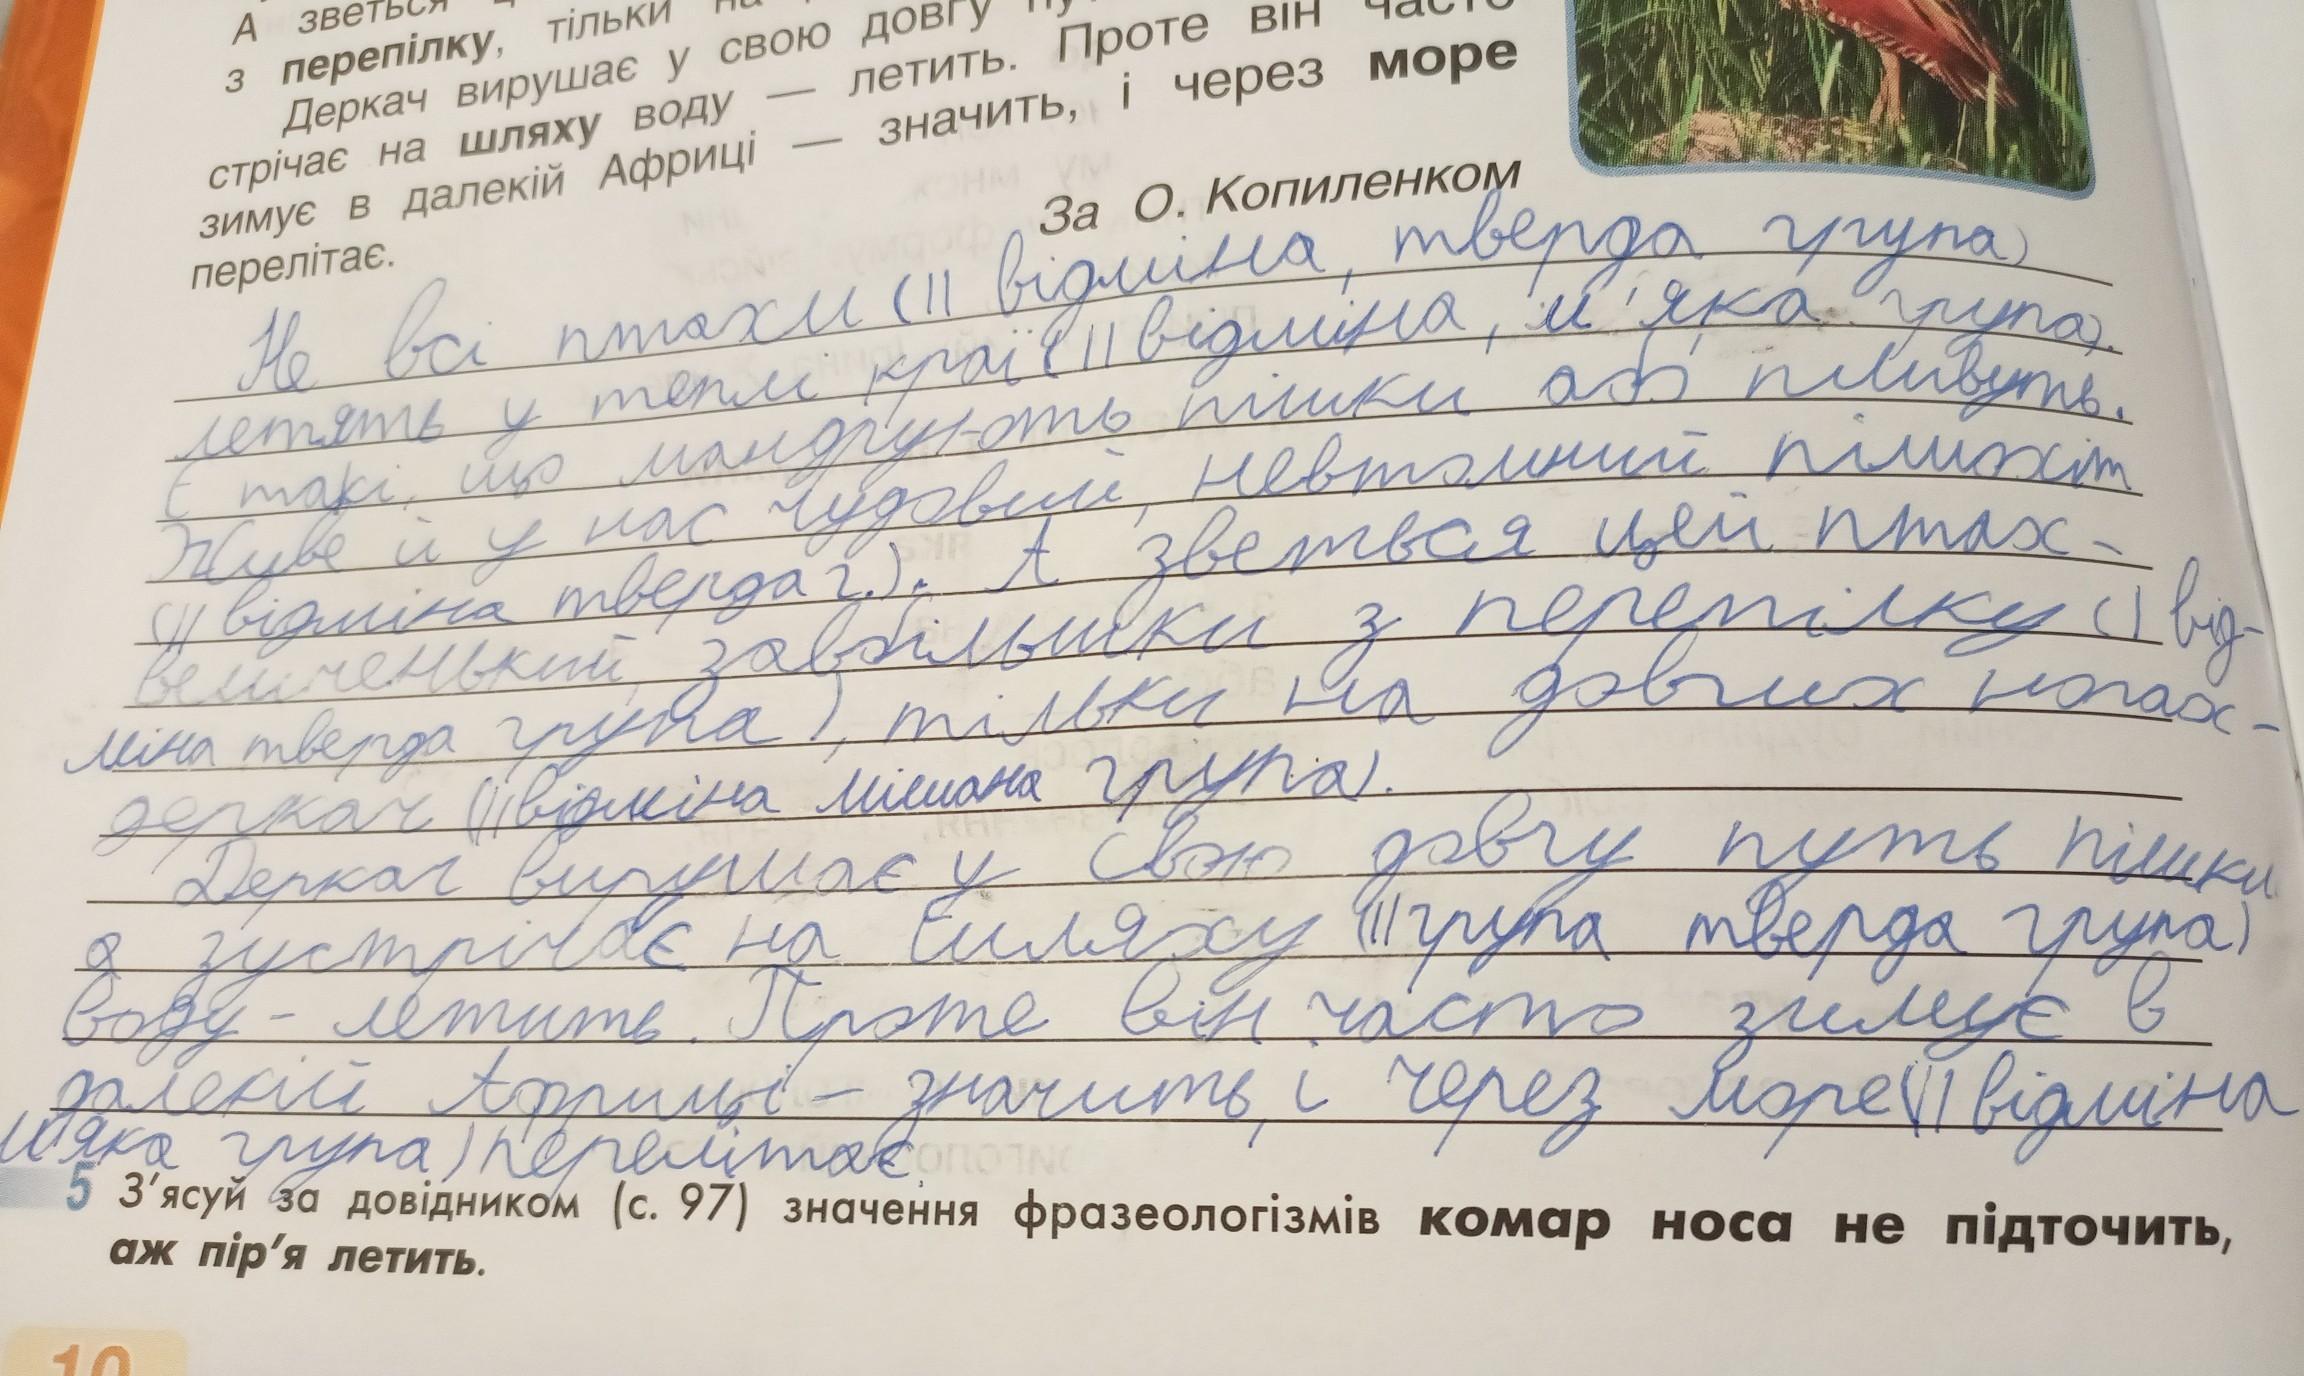 А зветься
з перепілку, тільки на
Деркач вирушає у свою довгу
стрічає на шляху воду — летить. Проте він часто
зимує в далекій Африці — значить, і через море
перелітає.
За О. Копиленком
Не всі птахи (II відміна, тверда група)
летять у теплі краї (II відміна, м'яка група).
Є такі, що мандрують пішки або пливуть.
Живе й у нас чудовий, невтомний пішохіт
(II відміна тверда г.). А зветься цей птах-
величенький, завбільшки з перепілку (I від-
міна тверда група), тільки на довгих ногах-
деркач (II відміна мішана група).
Деркач вирушає у свою довгу путь пішки
а зустрічає на шляху (II група тверда група)
воду - летить. Проте він часто зимує в
далекій Африці - значить, і через море (II відміна
м'яка група) перелітає.
5 З'ясуй за довідником (с. 97) значення фразеологізмів комар носа не підточить,
аж пір'я летить.
10